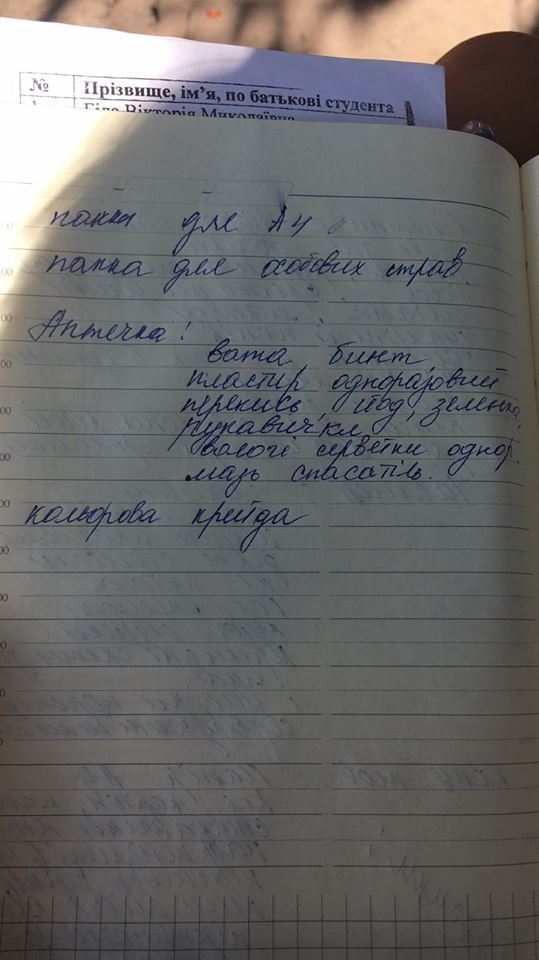 № Прізвище, ім’я, по батькові студента
Біла Вікторія Миколаївна
папка для А4
папка для особових справ.
Аптечка!
вата бинт
пластир одноразовий
перекись, йод, зеленка,
рукавички,
вологі серветки однор.
мазь спасатіль.
кольорова крейда